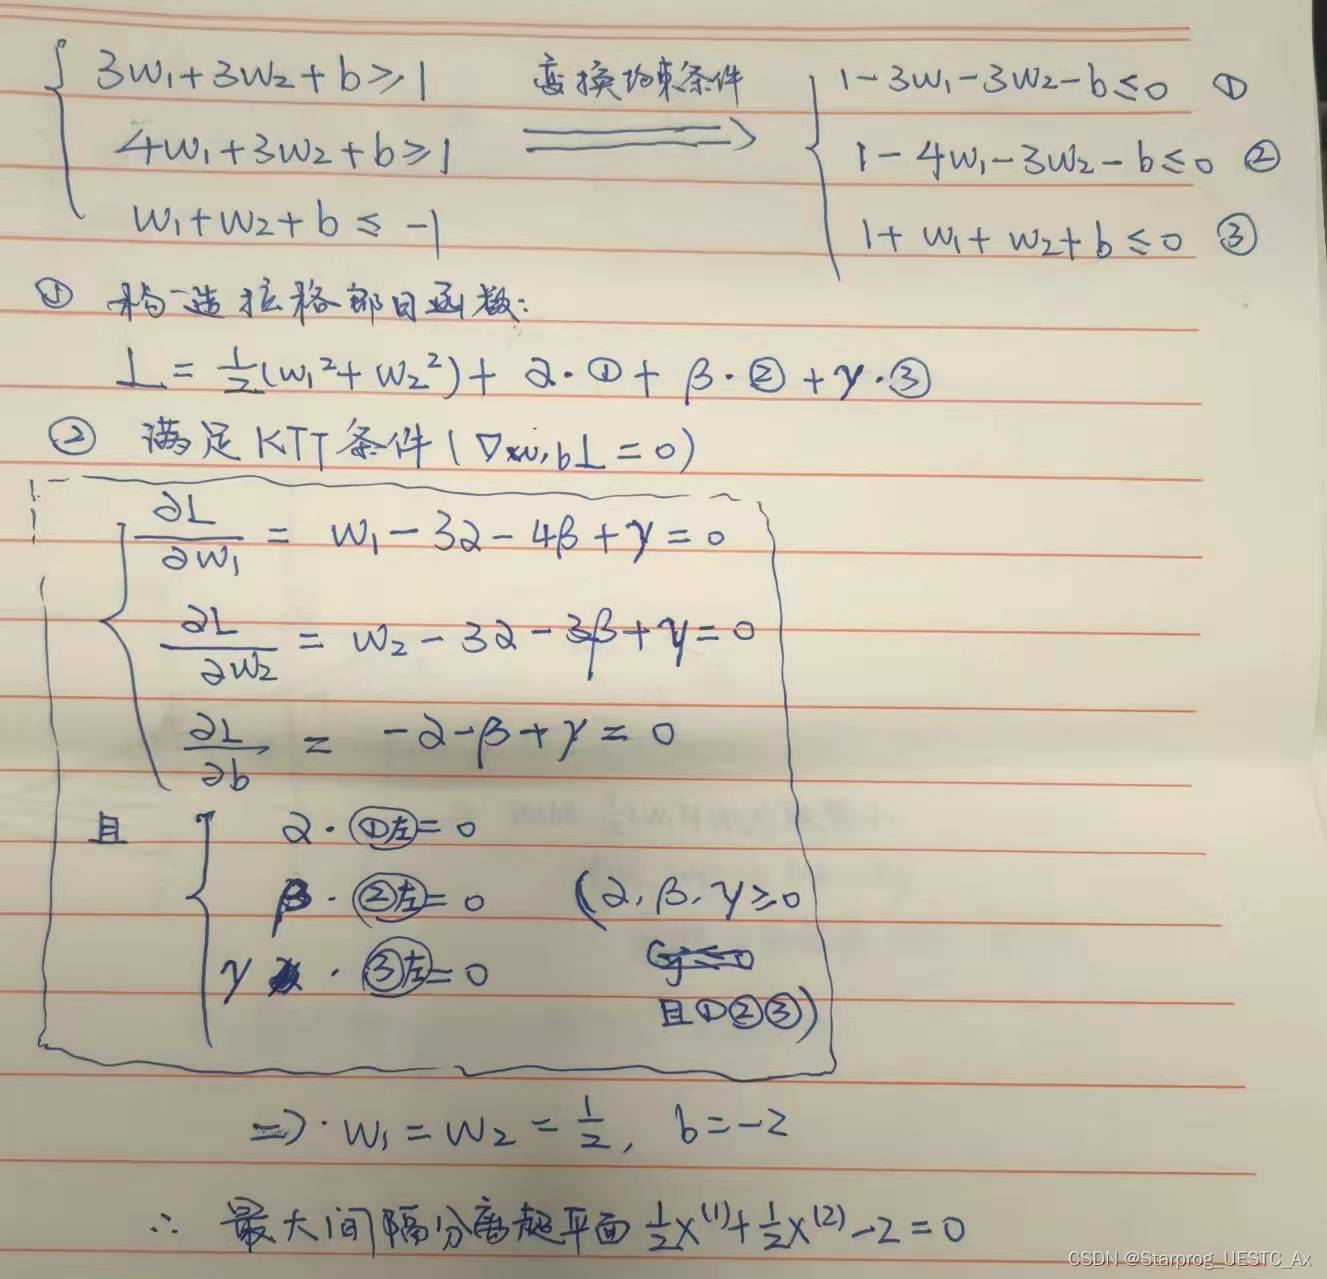 3w₁+3w₂+b≥1 变换约束条件 1-3w₁-3w₂-b≤0 ①
4w₁+3w₂+b≥1 ⟹ 1-4w₁-3w₂-b≤0 ②
w₁+w₂+b≤-1 1+w₁+w₂+b≤0 ③
① 构造拉格郎日函数:
L=½(w₁²+w₂²)+α·①+β·②+γ·③
② 满足KTT条件(∇w,bL=0)
∂L/∂w₁ = w₁-3α-4β+γ=0
∂L/∂w₂ = w₂-3α-3β+γ=0
∂L/∂b = -α-β+γ=0
且 α·①左=0
β·②左=0 (α,β,γ≥0
γ·③左=0
且①②③)
⇒ w₁=w₂=½, b=-2
∴ 最大间隔分离超平面 ½x⁽¹⁾+½x⁽²⁾-2=0
CSDN @Starprog_UESTC_Ax